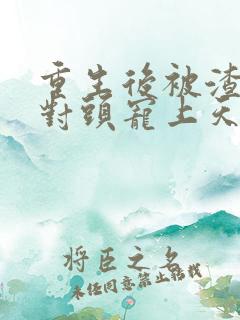 重生後被渣
對頭寵上天
將臣之名
未經同意禁止轉載